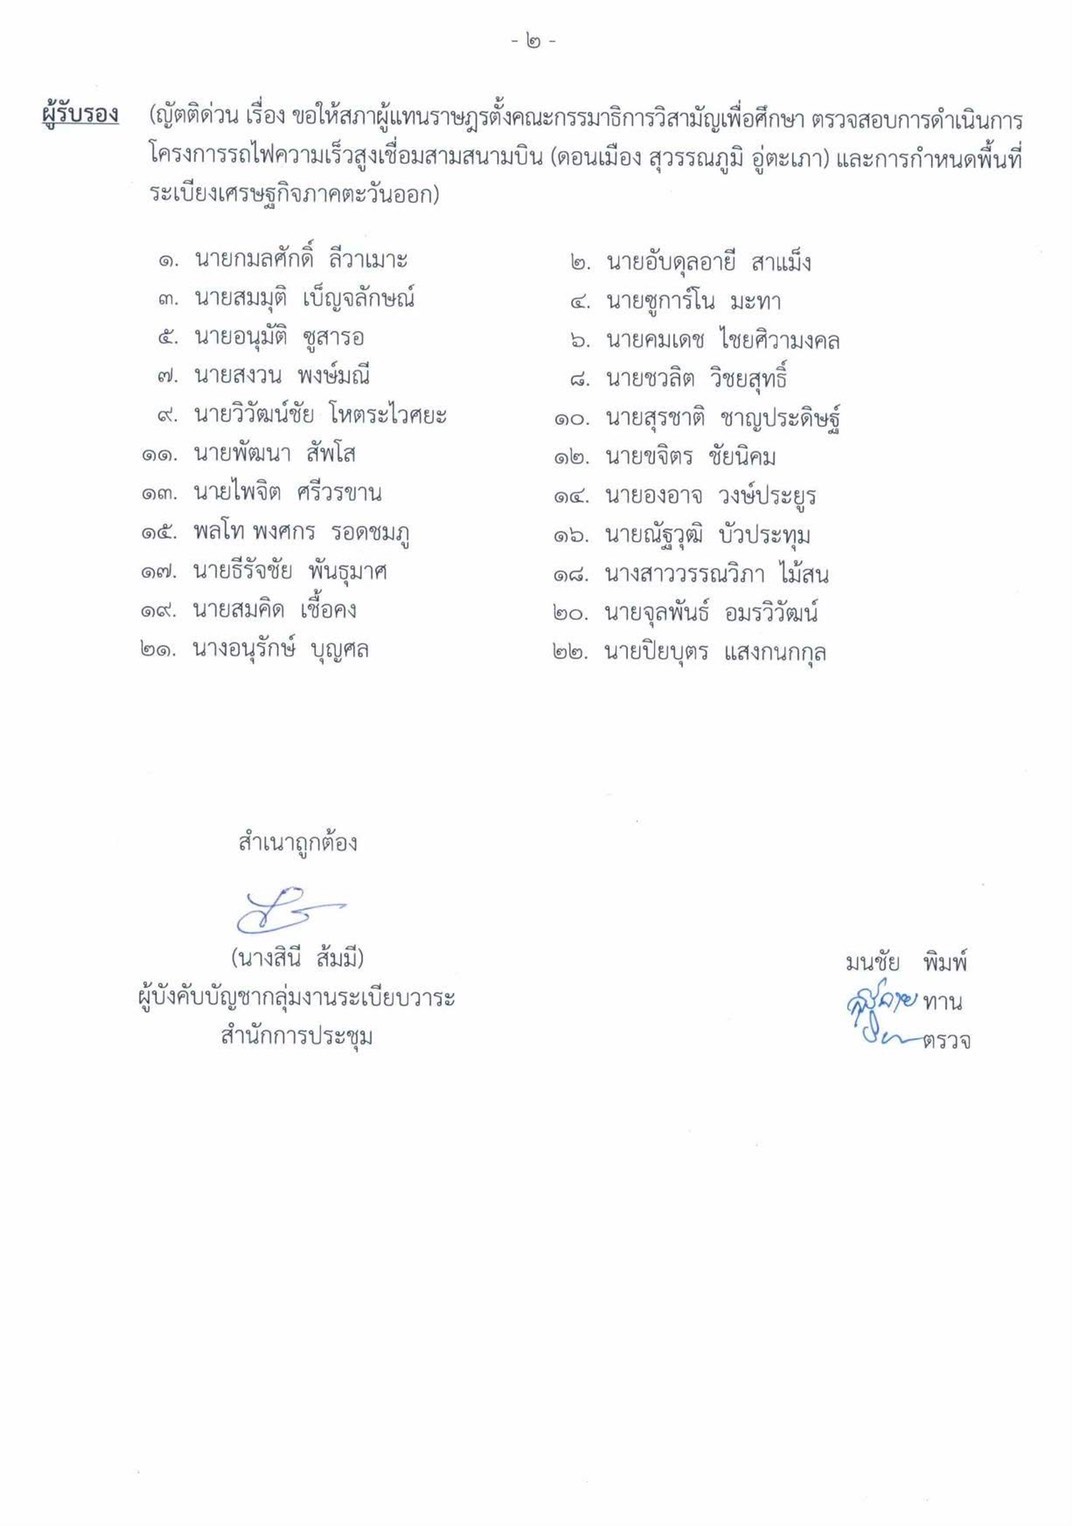 - ๒ -
ผู้รับรอง (ญัตติด่วน เรื่อง ขอให้สภาผู้แทนราษฎรตั้งคณะกรรมาธิการวิสามัญเพื่อศึกษา ตรวจสอบการดำเนินการ
โครงการรถไฟความเร็วสูงเชื่อมสามสนามบิน (ดอนเมือง สุวรรณภูมิ อู่ตะเภา) และการกำหนดพื้นที่
ระเบียงเศรษฐกิจภาคตะวันออก)
๑. นายกมลศักดิ์ ลีวาเมาะ ๒. นายอับดุลอายี สาแม็ง
๓. นายสมมุติ เบ็ญจลักษณ์ ๔. นายซูการ์โน มะทา
๕. นายอนุมัติ ซูสารอ ๖. นายคมเดช ไชยศิวามงคล
๗. นายสงวน พงษ์มณี ๘. นายชวลิต วิชยสุทธิ์
๙. นายวิวัฒน์ชัย โหตระไวศยะ ๑๐. นายสุรชาติ ชาญประดิษฐ์
๑๑. นายพัฒนา สัพโส ๑๒. นายขจิตร ชัยนิคม
๑๓. นายไพจิต ศรีวรขาน ๑๔. นายองอาจ วงษ์ประยูร
๑๕. พลโท พงศกร รอดชมภู ๑๖. นายณัฐวุฒิ บัวประทุม
๑๗. นายธีรัจชัย พันธุมาศ ๑๘. นางสาววรรณวิภา ไม้สน
๑๙. นายสมคิด เชื้อคง ๒๐. นายจุลพันธ์ อมรวิวัฒน์
๒๑. นางอนุรักษ์ บุญศล ๒๒. นายปิยบุตร แสงกนกกุล
สำเนาถูกต้อง
(นางสินี ส้มมี)
ผู้บังคับบัญชากลุ่มงานระเบียบวาระ
สำนักการประชุม
มนชัย พิมพ์
ทาน
ตรวจ